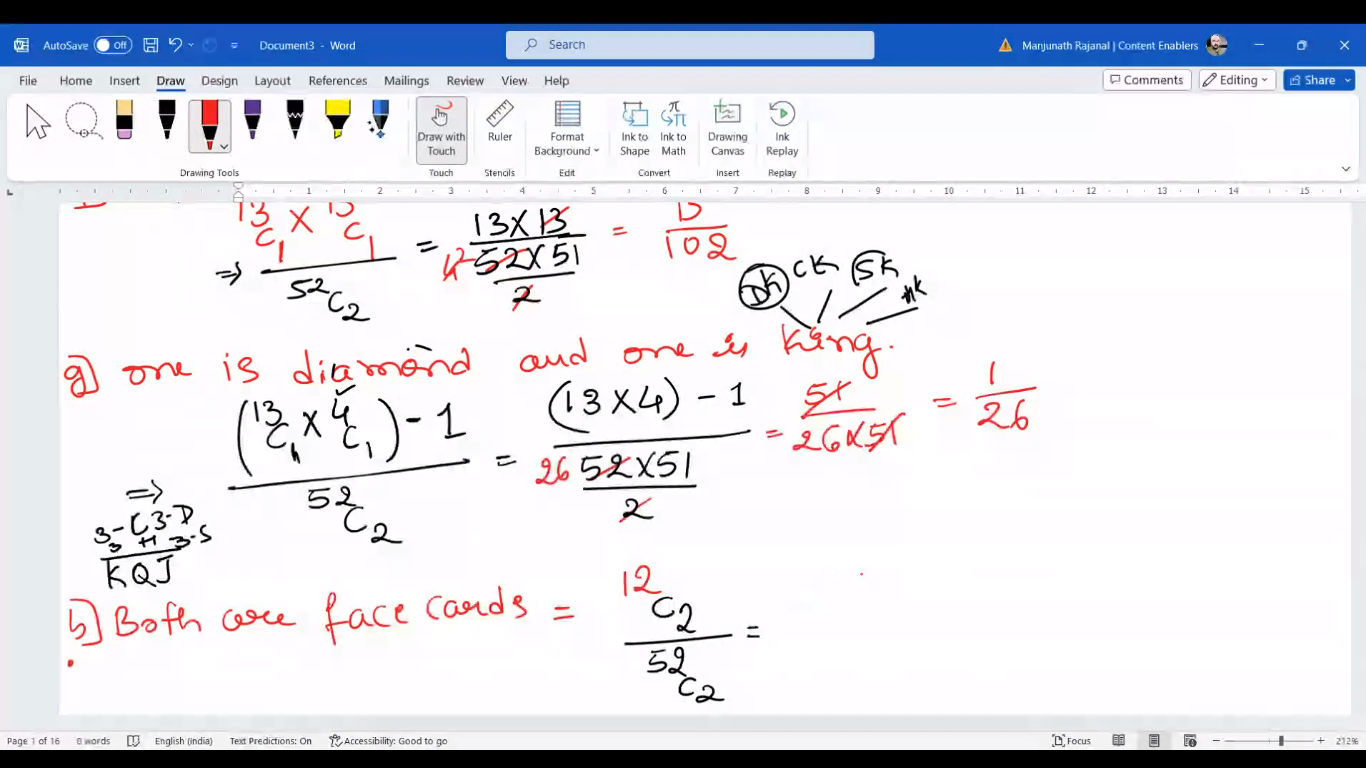 AutoSave Off Document3 - Word Search Manjunath Rajanal | Content Enablers
File Home Insert Draw Design Layout References Mailings Review View Help Comments Editing Share
Draw with Touch Ruler Format Background Ink to Shape Ink to Math Drawing Canvas Ink Replay
Drawing Tools Touch Stencils Edit Convert Insert Replay
1 2 3 4 5 6 7 8 9 10 11 12 13 14 15
⇒ 13C1 X 13C1 / 52C2 = 13 X 13 / 52 X 51 / 2 = 13 / 102
DK CK SK HK
g] one is diamond and one is king.
⇒ (13C1 X 4C1) - 1 / 52C2 = (13 X 4) - 1 / 26 52 X 51 / 2 = 51 / 26 X 51 = 1 / 26
3-C 3-D
3 H 3-S
KQJ
h] Both are face cards = 12C2 / 52C2 =
Page 1 of 16 0 words English (India) Text Predictions: On Accessibility: Good to go Focus 212%